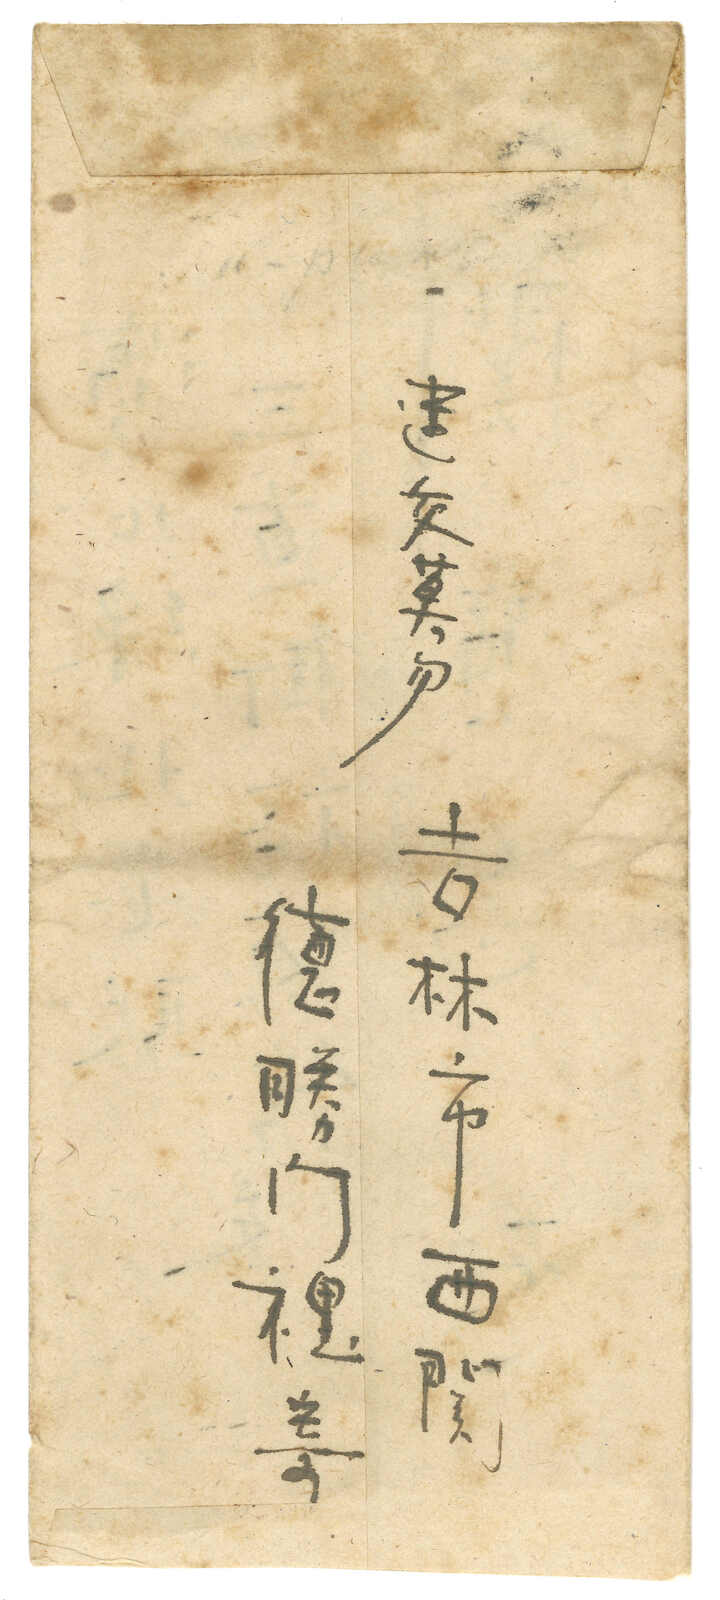 速交莫勿
吉林市西関
德勝門裡